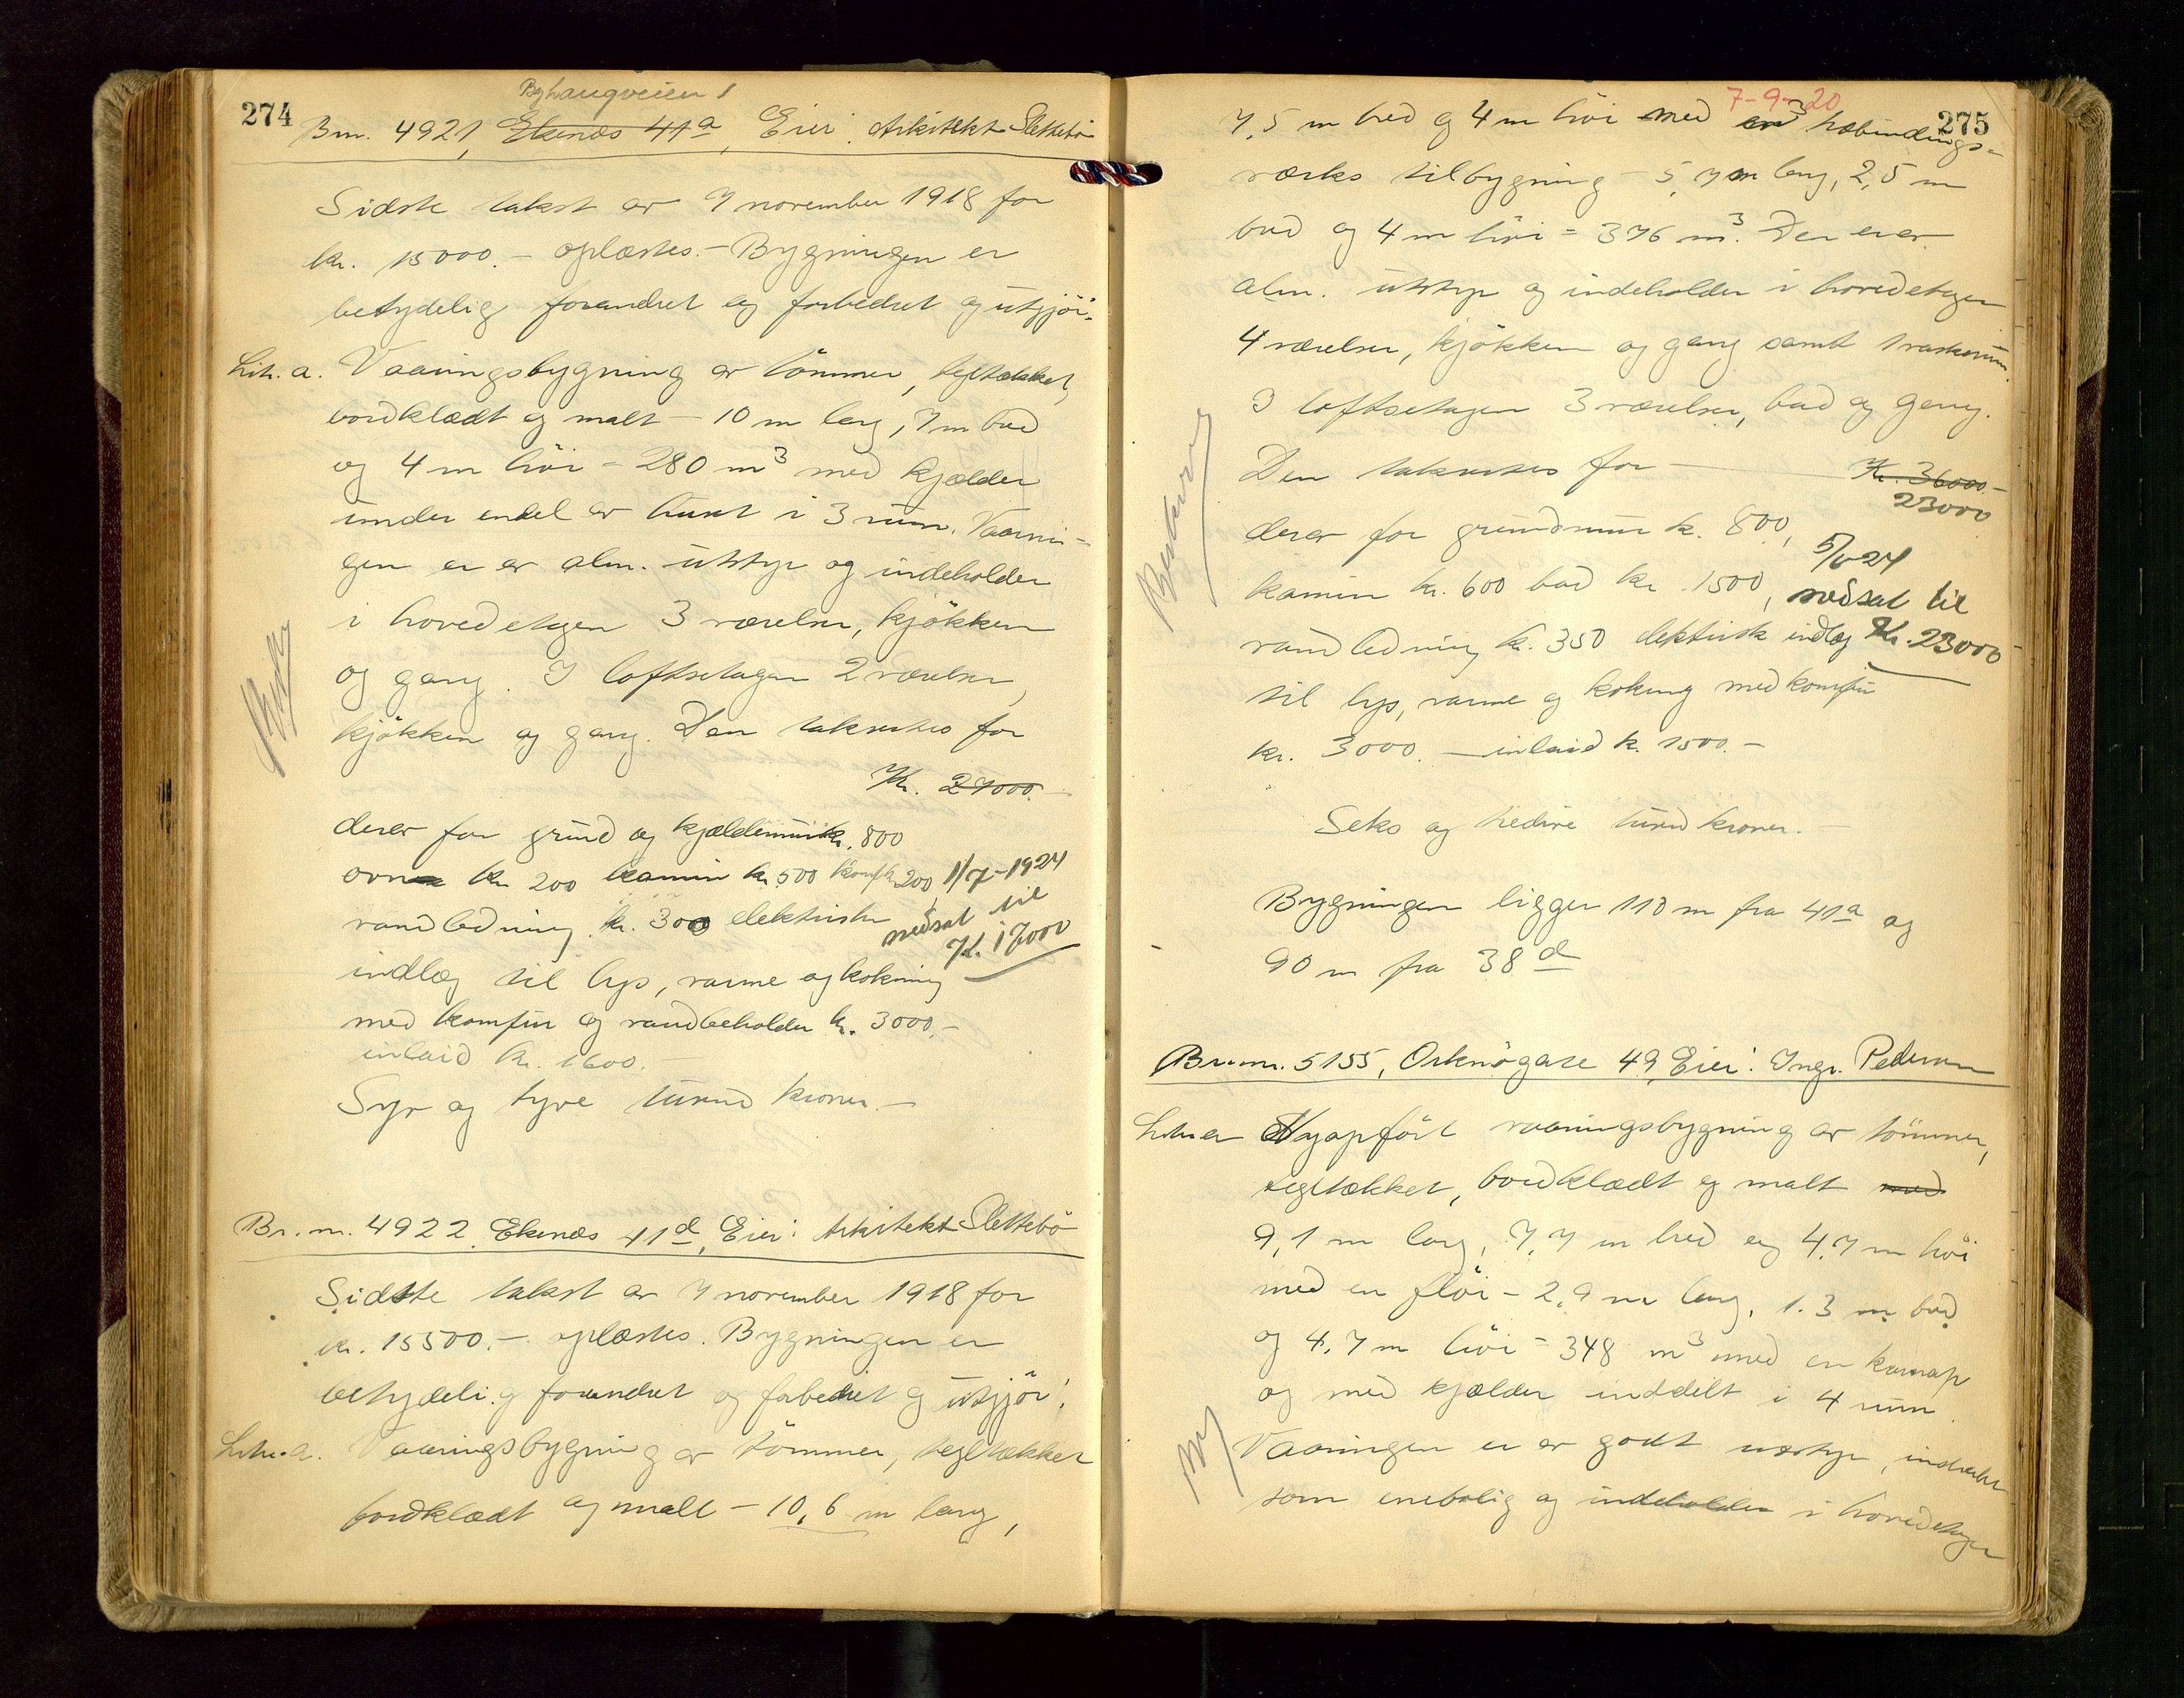 274
Byhaugveien 1
Br.nr. 4921, Ekenæs 41a, Eier: Arkitekt Slettebø
Sidste takst av 7 november 1918 for
kr. 15000.- oplæstes. - Bygningen er
betydelig forandret og forbedret og utgjør:
Litr. a. Vaaningsbygning av tømmer, tegltækket,
bordklædt og malt - 10 m lang, 7 m bred
og 4 m høi = 280 m3 med kjælder
under endel av huset i 3 rum. Vaanin-
gen er av alm. utstyr og indeholder
i hovedetagen 3 værelser, kjøkken
og gang. I loftsetagen 2 værelser,
kjøkken og gang. Den takseres for
Kr. 27000.-
derav for grund og kjældermur kr. 800
ovn kr 200 kamin kr. 500 komf kr. 200
vandledning kr. 300 elektriske
1/7-1924
nedsat til
Kr. 17000
indlæg til lys, varme og kokning
med komfur og vandbeholder kr. 3000.-
inlaid kr. 1600.-
Syv og tyve tusind kroner.-
Br.nr. 4922 Ekenæs 41d, Eier: Arkitekt Slettebø
Sidste takst av 7 november 1918 for
kr. 15500.- oplæstes. Bygningen er
betydelig forandret og forbedret og utgjør:
Litr. a. Vaaningsbygning av tømmer, tegltækket
bordklædt og malt - 10,6 m lang,
7-9-20
275
7,5 m bred og 4 m høi med en 3 halvbindings-
værks tilbygning - 5,7 m lang, 2,5 m
bred og 4 m høi = 376 m3. Den er av
alm. utstyr og indeholder i hovedetagen
4 værelser, kjøkken og gang samt 1 vaskerum.
I loftsetagen 3 værelser, bad og gang.
Den takseres for - Kr. 36000.-
23000
derav for grundmur kr. 800,
kamin kr. 600 bad kr. 1500,
5/6-24
nedsat til
Kr. 23000
vandledning kr. 350 elektrisk indlæg
til lys, varme og kokning med komfur
kr. 3000. - inlaid kr. 1500.-
Seks og tredive tusind kroner.-
Bygningen ligger 110 m fra 41a og
90 m fra 38d
Br.nr. 5155, Orknøgate 49, Eier: Ingv. Pedersen
Litr. a Nyopført vaaningsbygning av tømmer,
tegltækket, bordklædt og malt med
9,1 m lang, 7,7 m bred og 4,7 m høi
med en fløi - 2,9 m lang, 1.3 m bred
og 4,7 m høi = 348 m3 med en karnap
og med kjælder inddelt i 4 rum.
Vaaningen er av godt utstyr, indredet
som enebolig og indeholder i hovedetagen
Ny